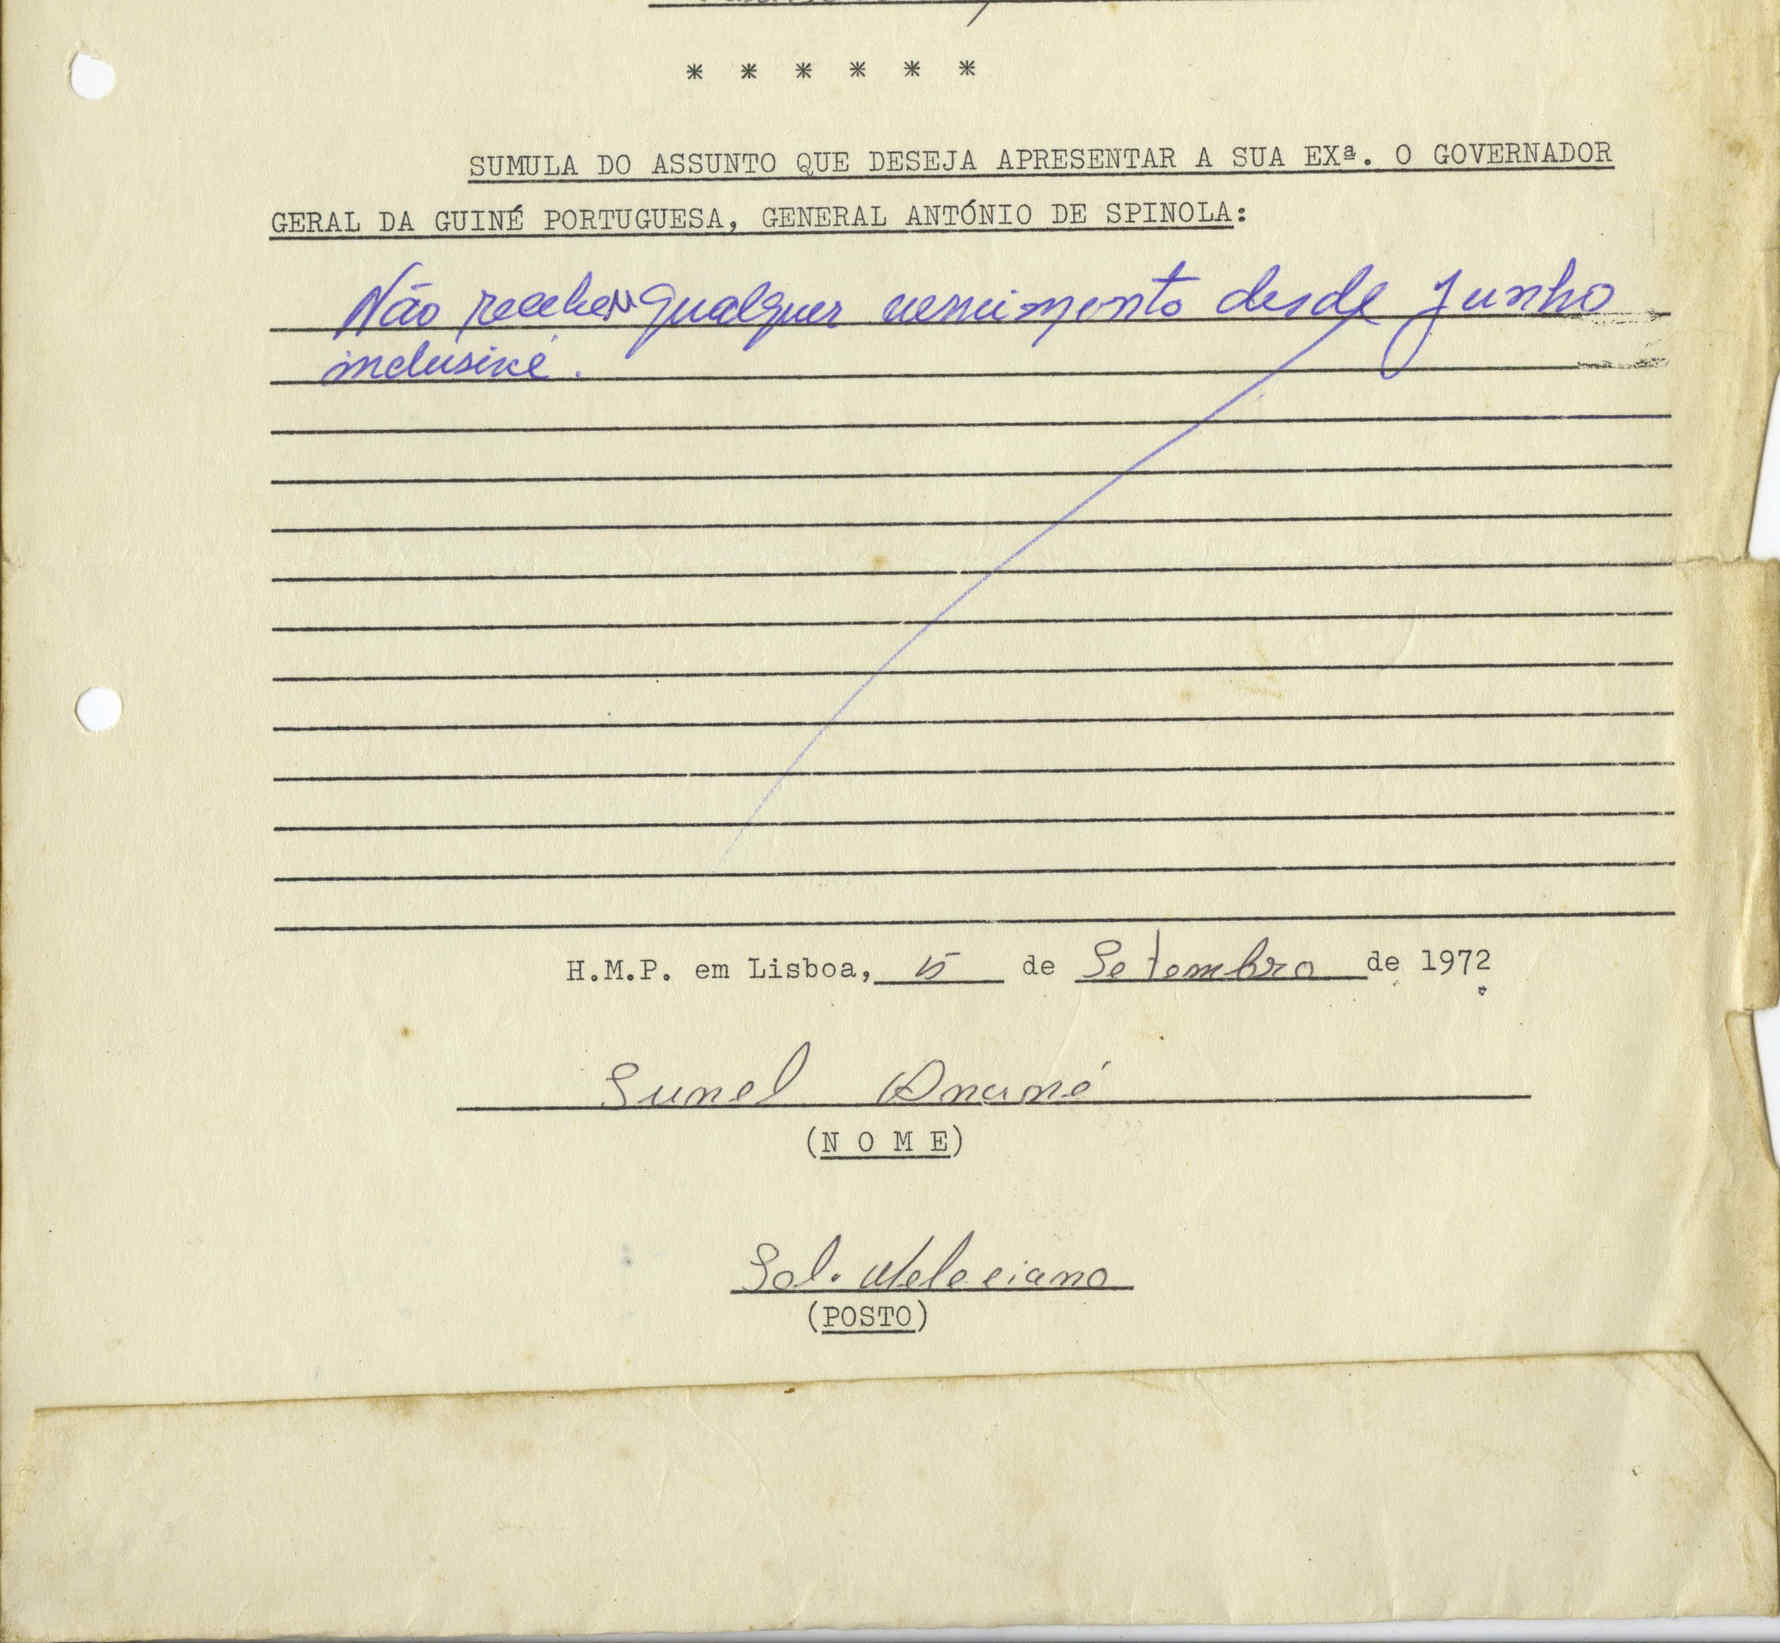 * * * * * *
SUMULA DO ASSUNTO QUE DESEJA APRESENTAR A SUA EXª. O GOVERNADOR
GERAL DA GUINÉ PORTUGUESA, GENERAL ANTÓNIO DE SPINOLA:
Não recebeu qualquer vencimento desde Junho
inclusivé.
H.M.P. em Lisboa, 15 de Setembro de 1972
Sunel
(N O M E)
Sol.
(POSTO)